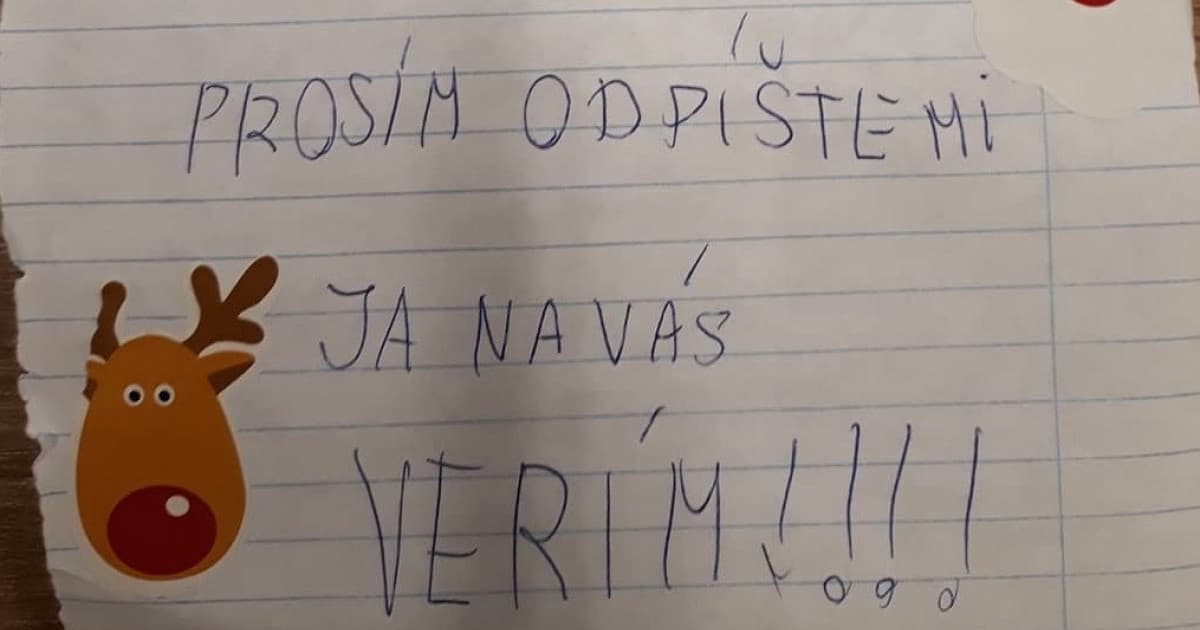 PROSÍM ODPÍŠTE MI
JA NA VÁS
VERÍM!!!!